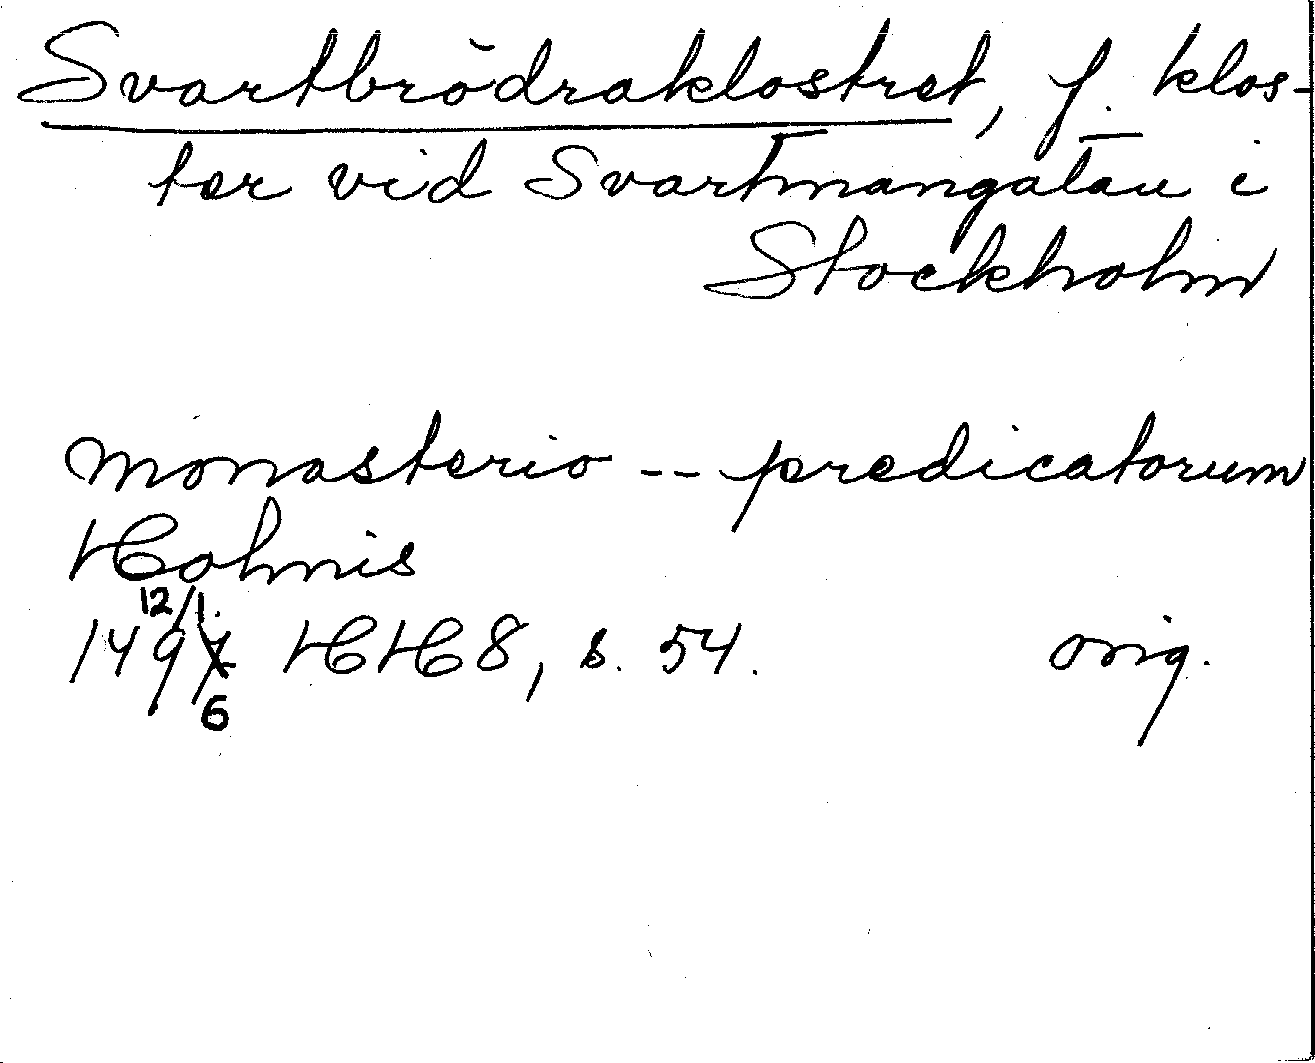 Svartbrödraklostret, f. klos-
ter vid Svartmangatan i
Stockholm
monasterio -- predicatorum
Holmis
12/1.
1497 HH 8, s. 54. orig.
6